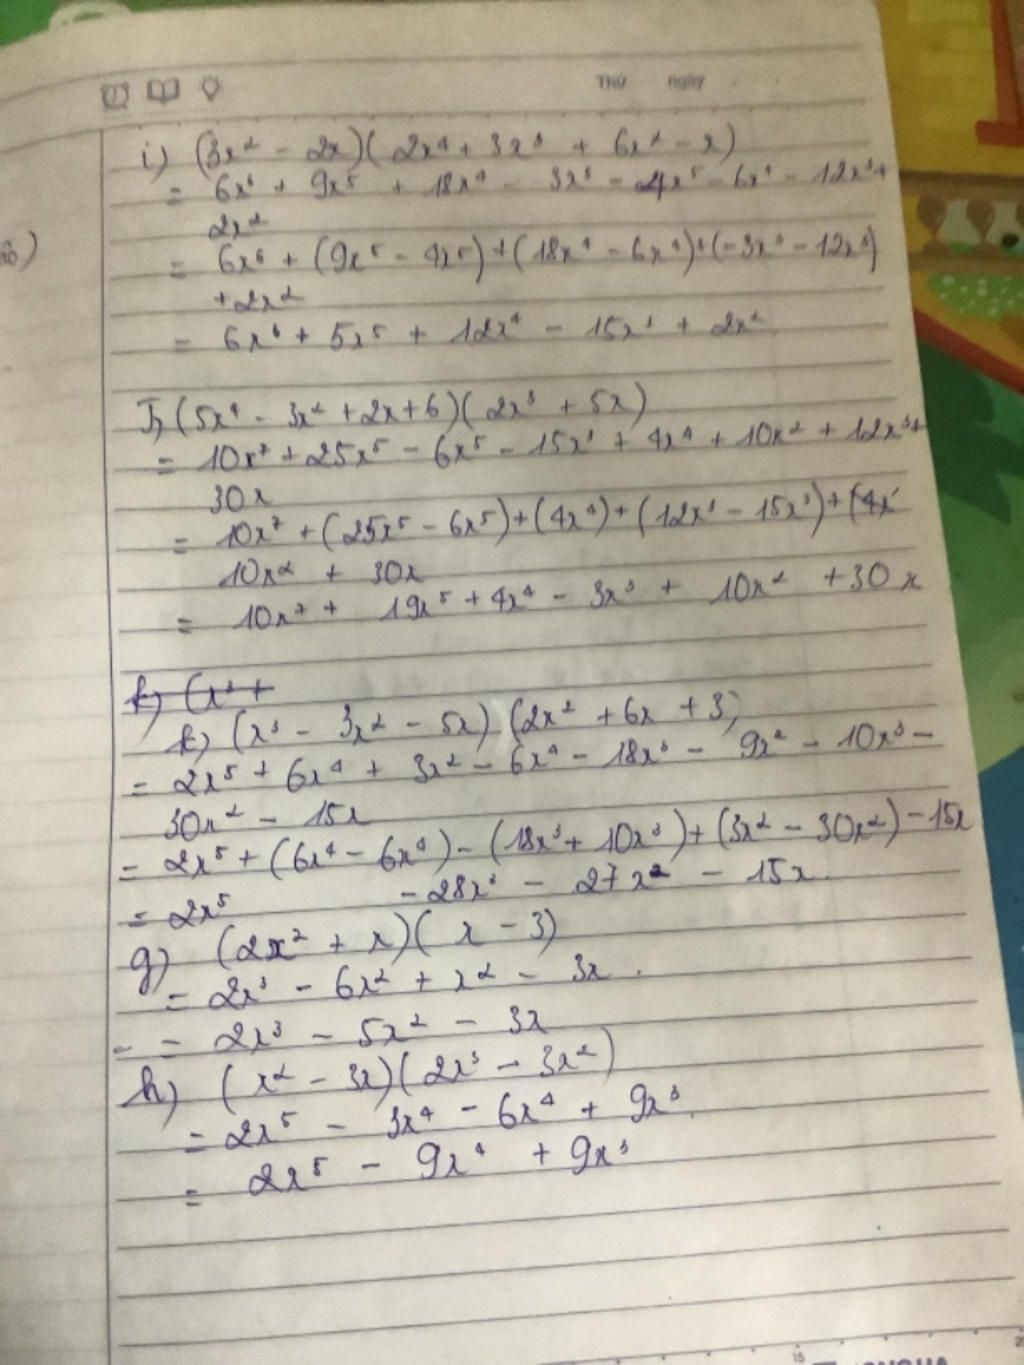 Thứ ngày
i) (3x² - 2x)(2x⁴ + 3x³ + 6x² - x)
= 6x⁶ + 9x⁵ + 18x⁴ - 3x³ - 4x⁵ - 6x⁴ - 12x³ +
2x²
= 6x⁶ + (9x⁵ - 4x⁵) + (18x⁴ - 6x⁴) + (-3x³ - 12x³)
+ 2x²
= 6x⁶ + 5x⁵ + 12x⁴ - 15x³ + 2x²
J, (5x⁴ - 3x² + 2x + 6)(2x³ + 5x)
= 10x⁷ + 25x⁵ - 6x⁵ - 15x³ + 4x⁴ + 10x² + 12x³ +
30x
= 10x⁷ + (25x⁵ - 6x⁵) + (4x⁴) + (12x³ - 15x³) + (4x
10x² + 30x
= 10x⁷ + 19x⁵ + 4x⁴ - 3x³ + 10x² + 30x
k) (x³ +
k) (x³ - 3x² - 5x) (2x² + 6x + 3)
= 2x⁵ + 6x⁴ + 3x² - 6x⁴ - 18x³ - 9x² - 10x³ -
30x² - 15x
= 2x⁵ + (6x⁴ - 6x⁴) - (18x³ + 10x³) + (3x² - 30x²) - 15x
= 2x⁵ - 28x³ - 27x² - 15x
g) (2x² + x)(x - 3)
= 2x³ - 6x² + x² - 3x.
- = 2x³ - 5x² - 3x
h) (x² - 3x)(2x³ - 3x²)
= 2x⁵ - 3x⁴ - 6x⁴ + 9x³.
= 2x⁵ - 9x⁴ + 9x³
15